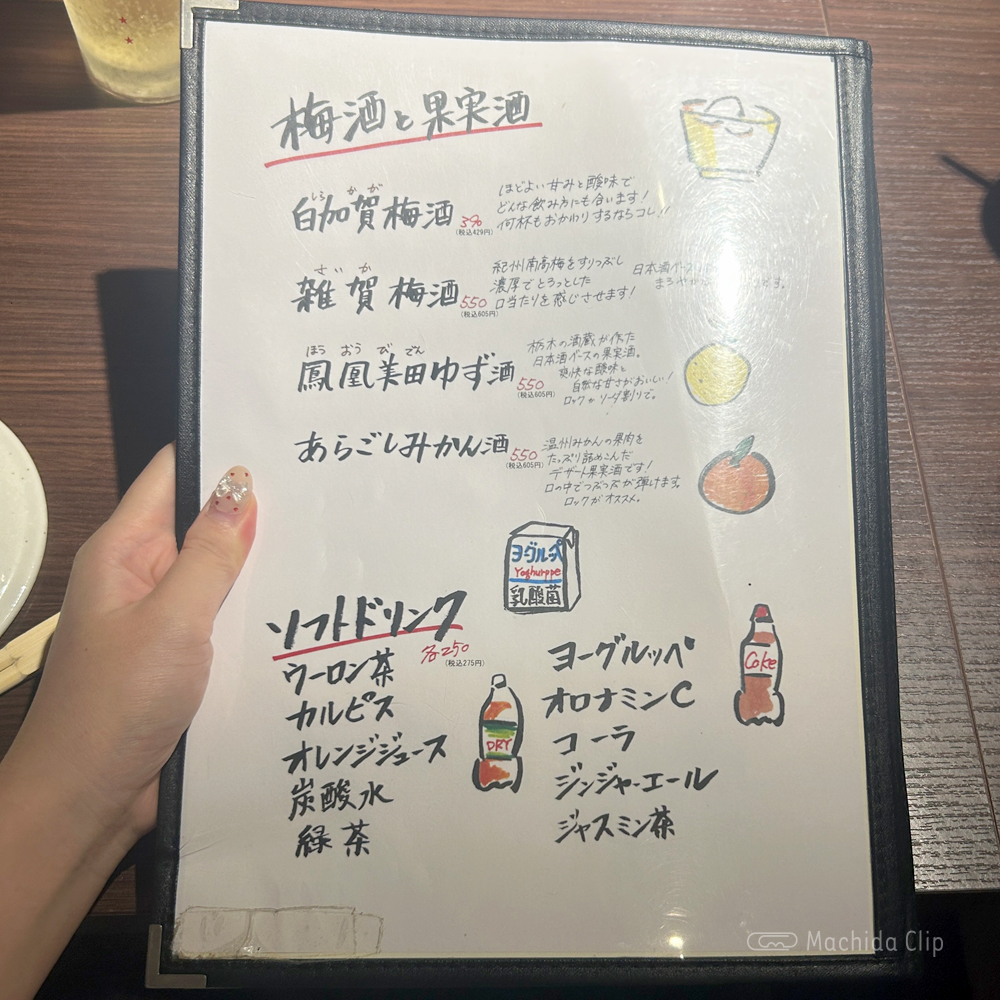 梅酒と果実酒
しら かが
白加賀梅酒 390
(税込429円)
ほどよい甘みと酸味で
どんな飲み方にも合います!
何杯もおかわりするならコレ!!
さいか
雑賀梅酒 550
(税込605円)
紀州南高梅をすりつぶし
濃厚でとろっとした
口当たりを感じさせます!
日本酒ベース
まろやか
ほう おう び でん
鳳凰美田ゆず酒 550
(税込605円)
栃木の酒蔵が作った
日本酒ベースの果実酒。
爽快な酸味と
自然な甘さがおいしい!
ロックorソーダ割りで。
あらごしみかん酒 550
(税込605円)
温州みかんの果肉を
たっぷり詰めこんだ
デザート果実酒です!
口の中でつぶつぶが弾けます。
ロックがオススメ。
ヨーグルッペ
Yoghurppe
乳酸菌
ソフトドリンク
各250
(税込275円)
ウーロン茶
カルピス
オレンジジュース
炭酸水
緑茶
DRY
ヨーグルッペ
オロナミンC
コーラ
ジンジャーエール
ジャスミン茶
Coke
Machida Clip